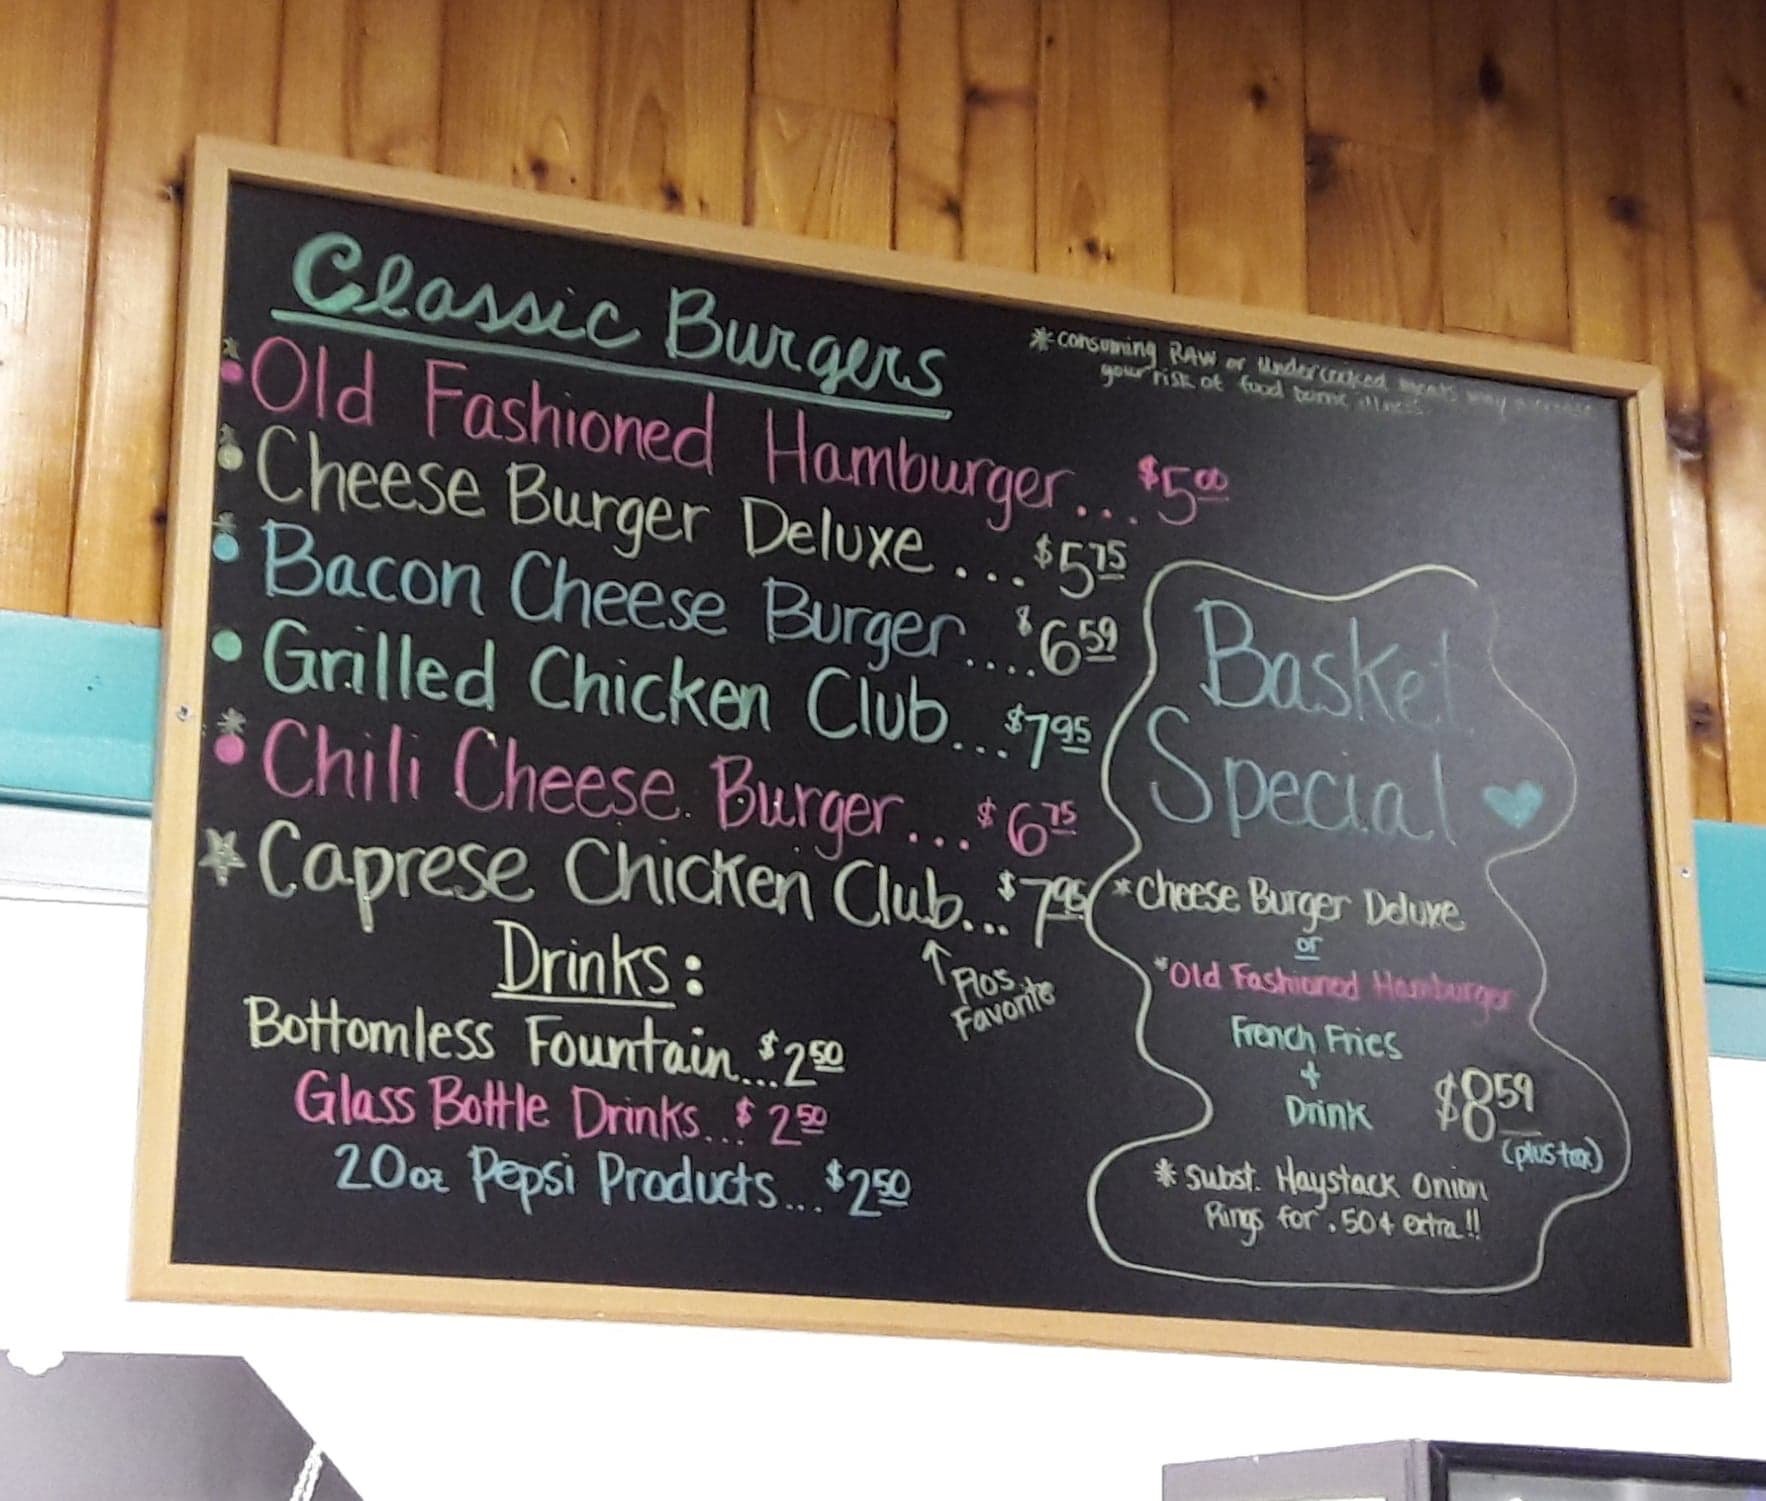 Classic Burgers
* consuming RAW or Undercooked meats may increase
your risk of food borne illness.
* • Old Fashioned Hamburger... $5.00
* • Cheese Burger Deluxe... $5.75
* • Bacon Cheese Burger.... $6.59
• Grilled Chicken Club... $7.95
* • Chili Cheese Burger... $6.75
* Caprese Chicken Club... $7.95
↑ Flos
Favorite
Drinks:
Bottomless Fountain... $2.50
Glass Bottle Drinks... $2.50
20oz Pepsi Products... $2.50
Basket
Special ♥
* Cheese Burger Deluxe
or
*Old Fashioned Hamburger
French Fries
+
Drink
$8.59
(plus tax)
* Subst. Haystack Onion
Rings for .50¢ extra!!